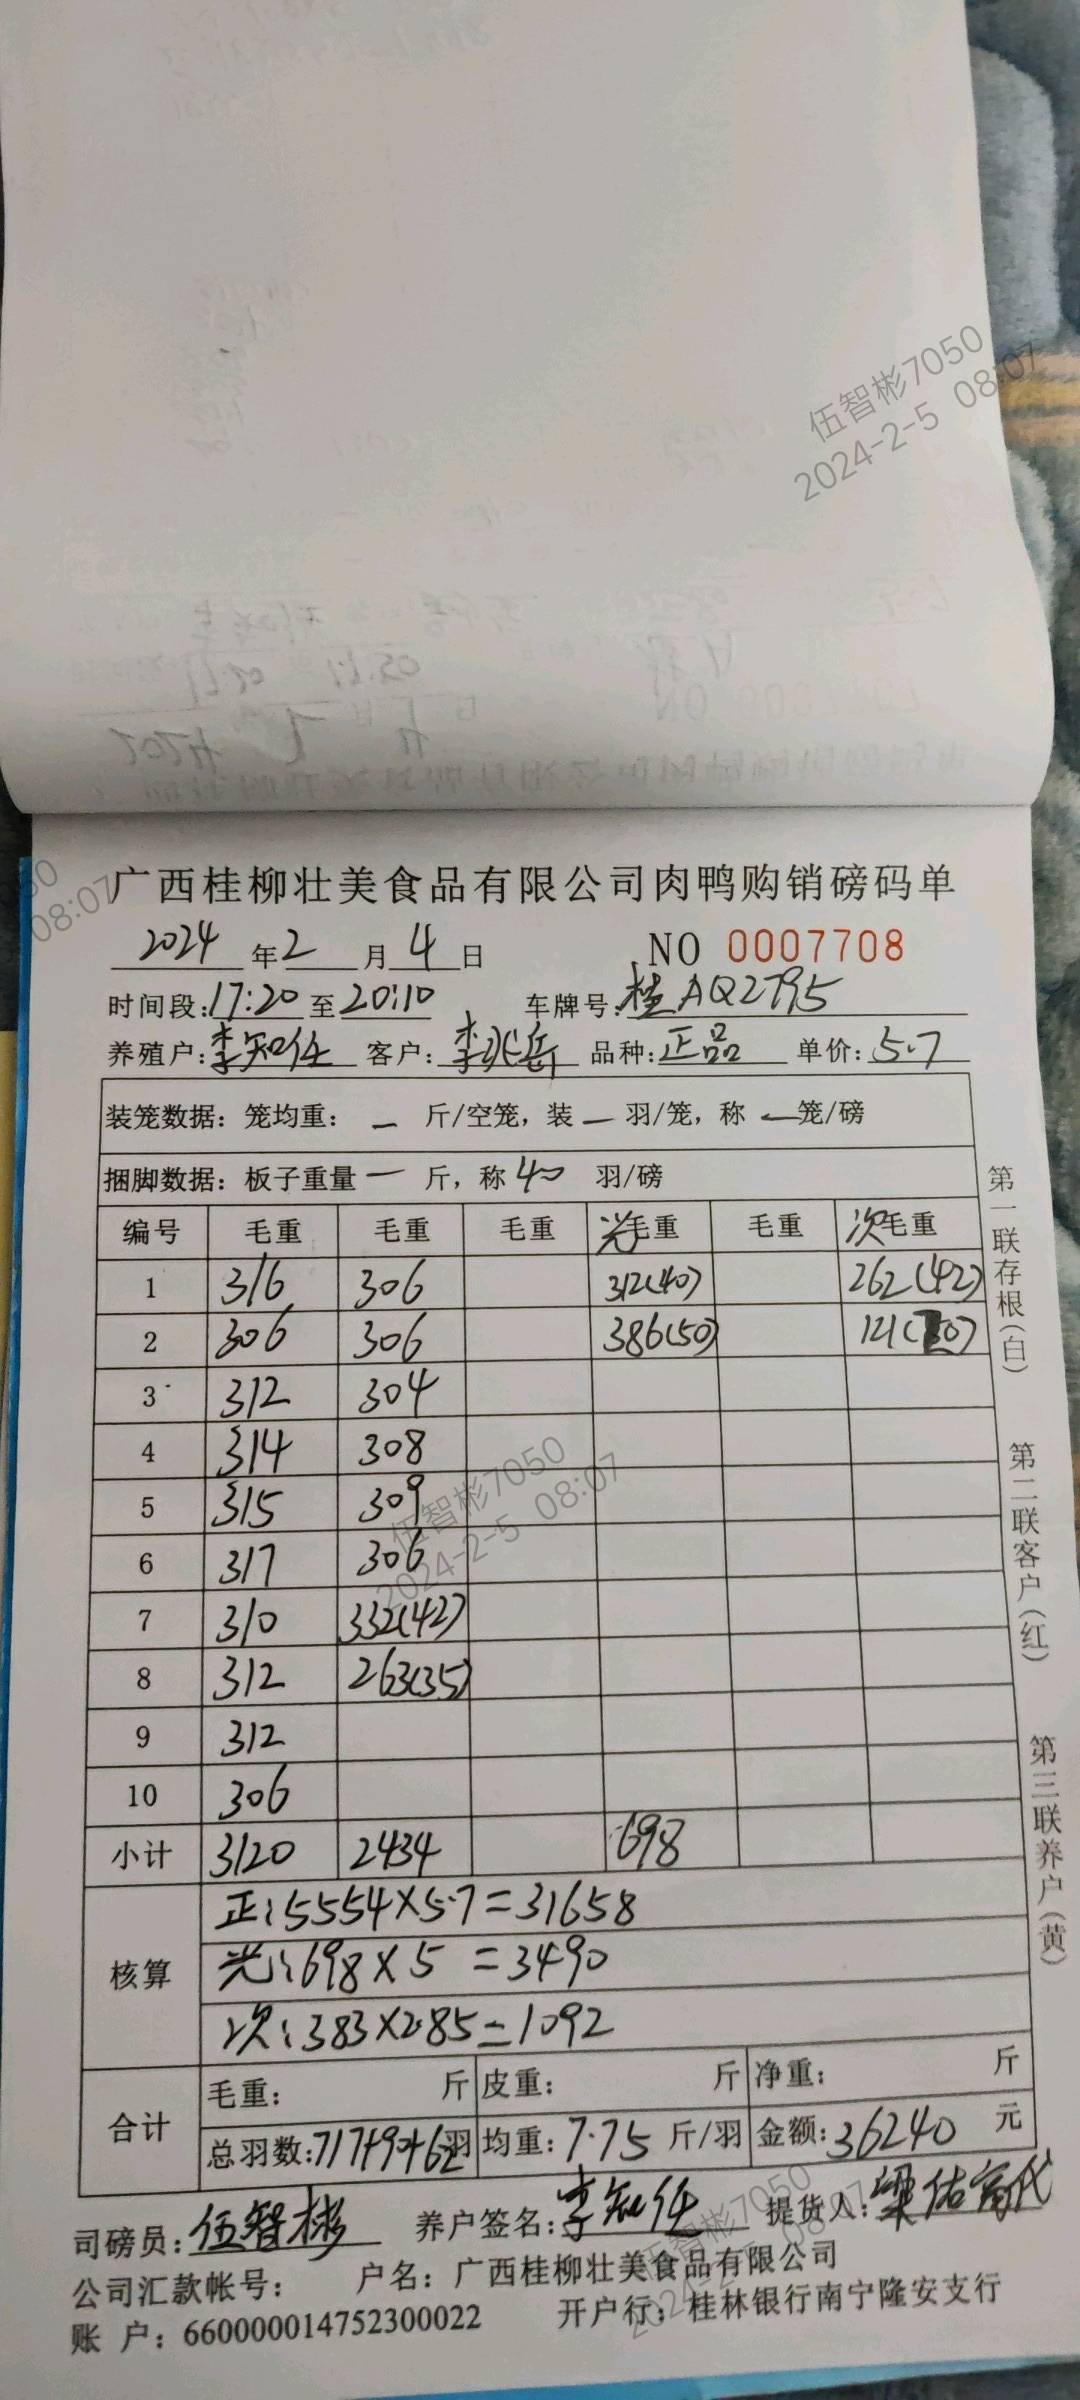 伍智彬7050
2024-2-5 08:07
08:07
广西桂柳壮美食品有限公司肉鸭购销磅码单
2024年2月4日 NO 0007708
时间段:17:20至20:10 车牌号:桂AQ2795
养殖户:李知任 客户:李兆岳 品种:正品 单价:5.7
装笼数据:笼均重: — 斤/空笼,装—羽/笼,称—笼/磅
捆脚数据:板子重量 — 斤,称40 羽/磅
编号 毛重 毛重 毛重 光毛重 毛重 次毛重
1 316 306 312(40) 262(42)
2 306 306 386(50) 121( 0)
3 312 304
4 314 308
5 315 309
6 317 306
7 310 332(42)
8 312 263(35)
9 312
10 306
小计 3120 2434 698
核算
正:5554×5.7=31658
光:698×5=3490
次:383×2.85=1092
合计
毛重: 斤 皮重: 斤 净重: 斤
总羽数:717+90+62羽 均重:7.75 斤/羽 金额:36240 元
司磅员:伍智彬 养户签名:李知任 提货人:梁佑富代
公司汇款帐号: 户名:广西桂柳壮美食品有限公司
账 户:660000014752300022 开户行:桂林银行南宁隆安支行
第一联存根(白)
第二联客户(红)
第三联养户(黄)
伍智彬7050
2024-2-5 08:07
伍智彬7050
2024-2-5 08:07